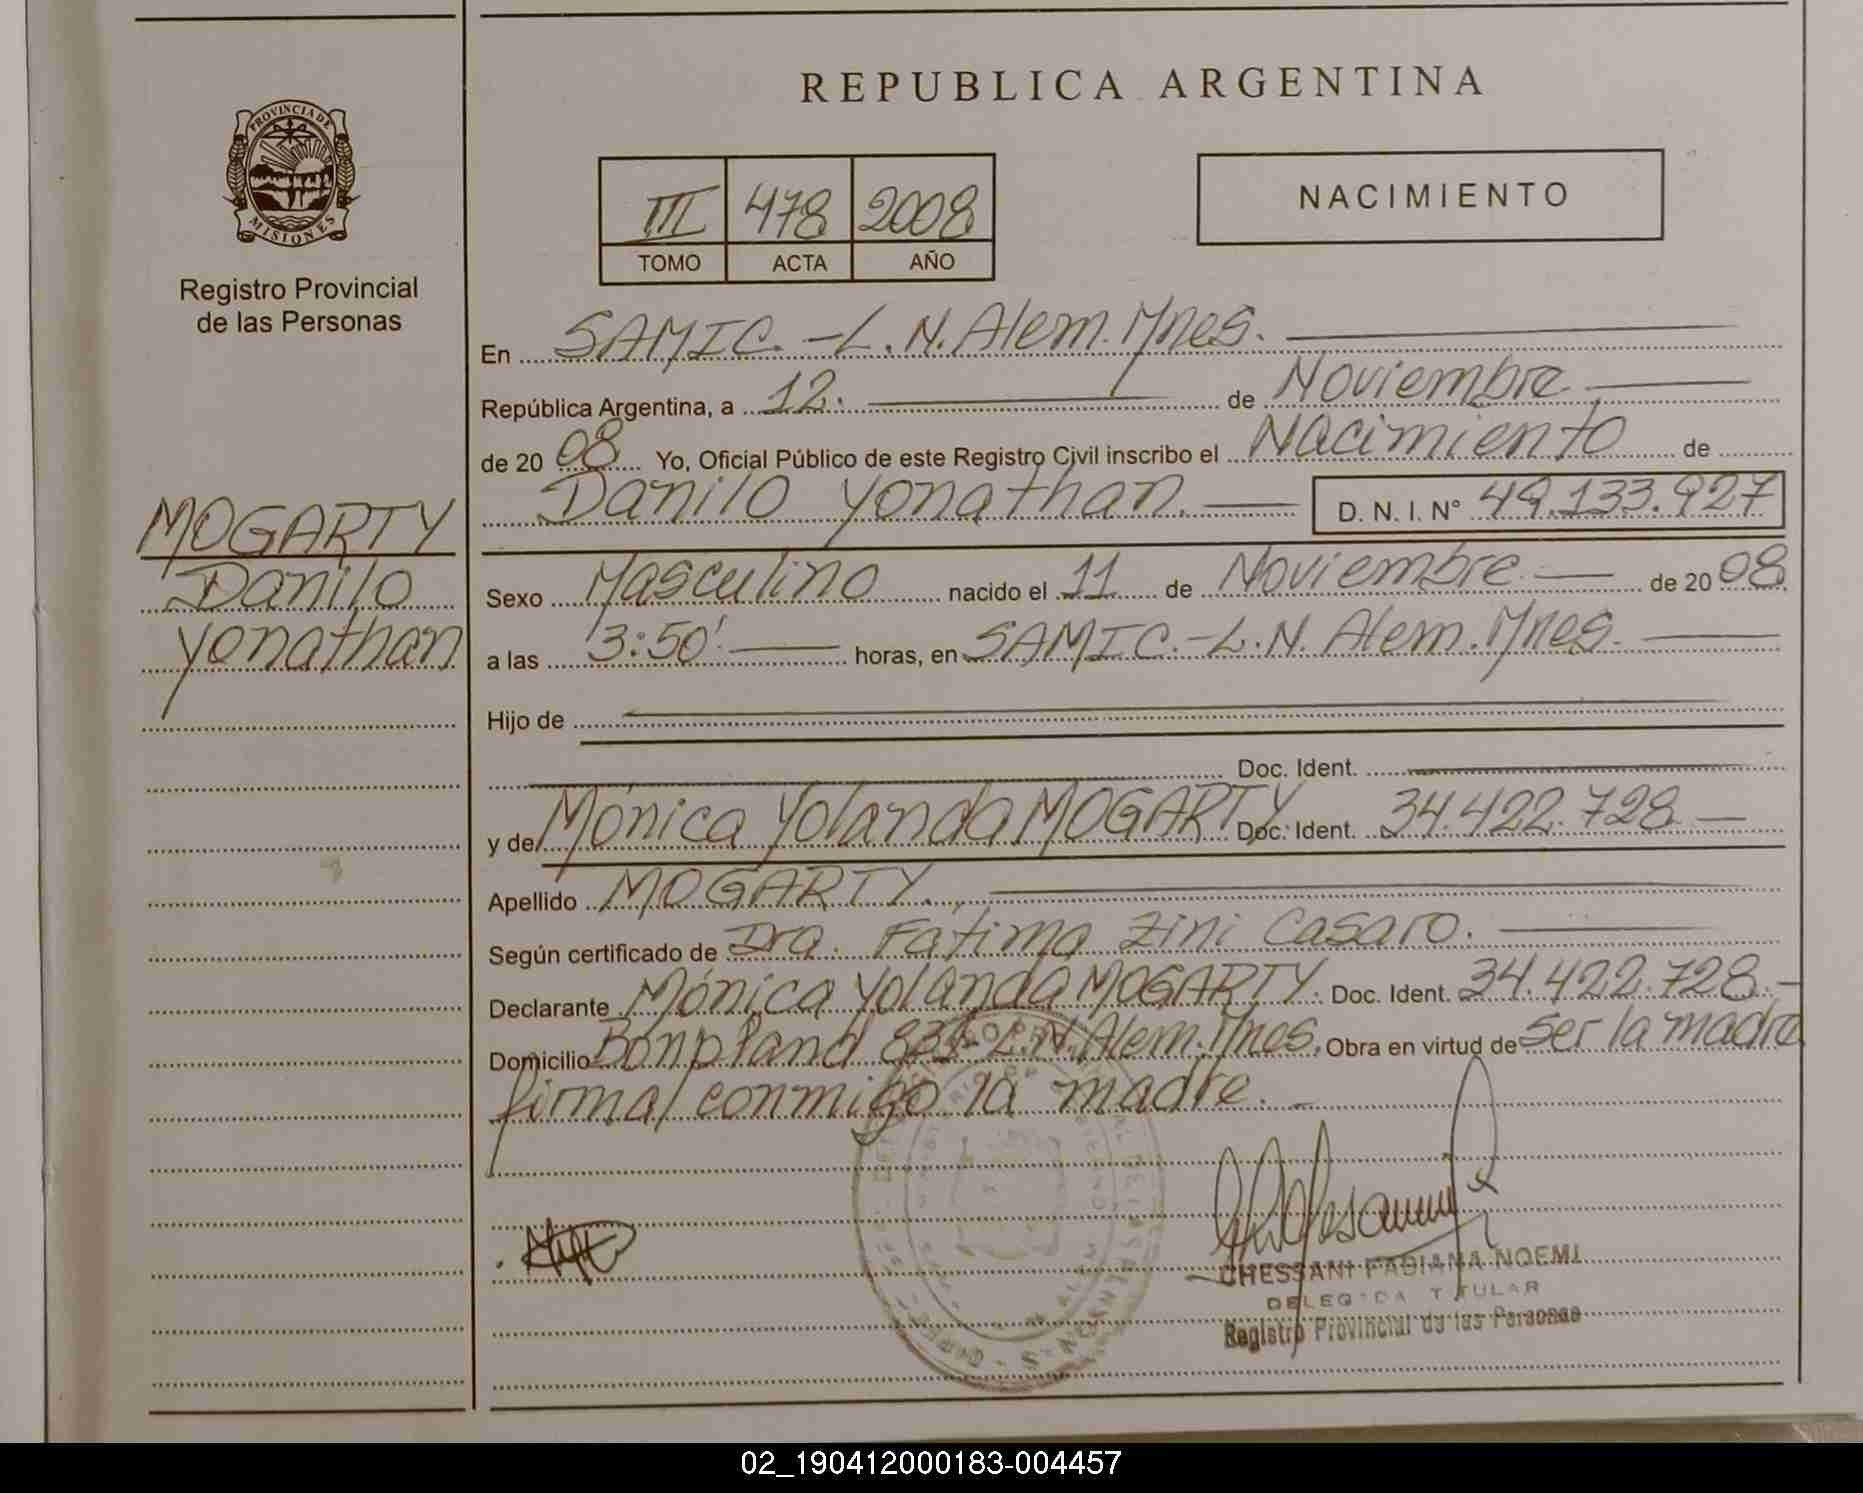 REPUBLICA ARGENTINA
PROVINCIA DE
MISIONES
Registro Provincial
de las Personas
III 478 2008
TOMO ACTA AÑO
NACIMIENTO
En SAMIC.-L.N.Alem.Mnes.
República Argentina, a 12. de Noviembre
de 20 08 Yo, Oficial Público de este Registro Civil inscribo el Nacimiento de
Danilo Yonathan. D. N. I. N° 49.133.927
MOGARTY
Danilo
Yonathan
Sexo Masculino nacido el 11 de Noviembre de 20 08
a las 3:50' horas, en SAMIC.-L.N. Alem.Mnes.
Hijo de
Doc. Ident.
y de Mónica Yolanda MOGARTY Doc. Ident. 34.422.728
Apellido MOGARTY.
Según certificado de Dra. Fátima Zini Casaro.
Declarante Mónica Yolanda MOGARTY. Doc. Ident. 34.422.728.-
Domicilio Bonpland L.N.Alem.Mnes. Obra en virtud de ser la madre
firma conmigo la madre.-
CHESSANI FABIANA NOEMI
DELEGADA TITULAR
Registro Provincial de las Personas
02_190412000183-004457